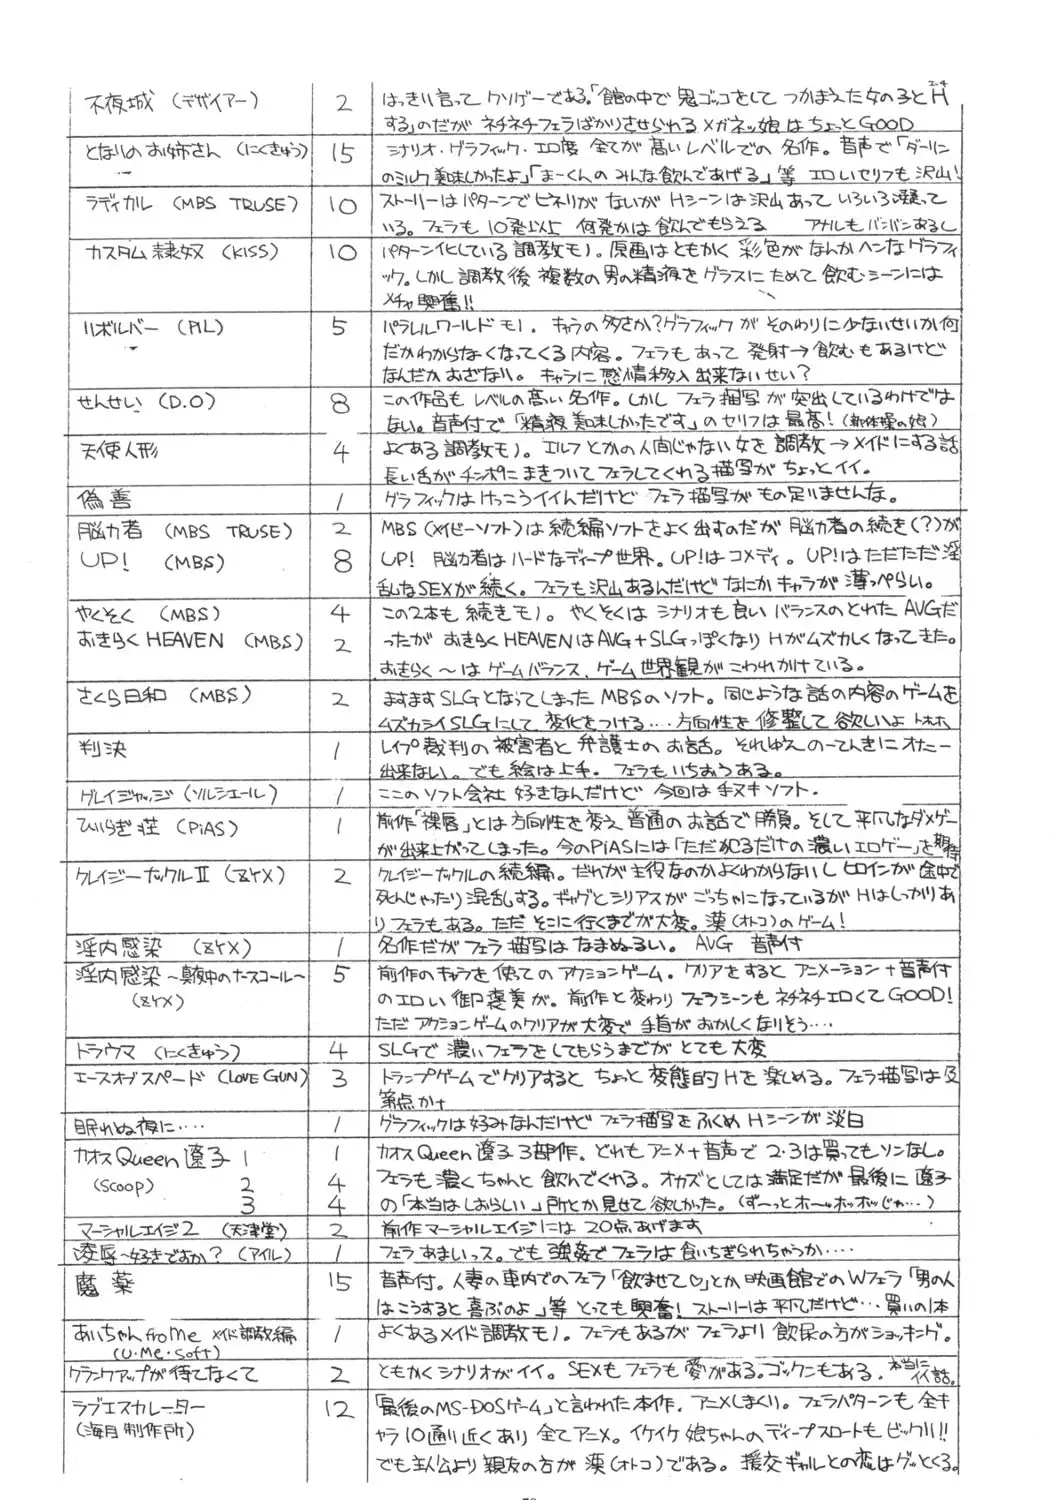 不夜城（デザイアー） 2 はっきり言ってクソゲーである。「館の中で鬼ゴッコをしてつかまえた女の子とH
エッチ
する」のだがネチネチフェラばかりさせられるメガネッ娘はちょっとGOOD
となりのお姉さん（にくきゅう） 15 シナリオ・グラフィック・エロ度全てが高いレベルでの名作。音声で「ダーリン
のミルク美味しかったよ」「まーくんのみんな飲んであげる」等エロいセリフも沢山！
ラディカル（MBS TRUSE） 10 ストーリーはパターンでヒネリがないがHシーンは沢山あっていろいろ凝って
いる。フェラも10発以上何発かは飲んでもらえる アナルもバンバンあるし
カスタム隷奴（KISS） 10 パターン化している調教モノ。原画はともかく彩色がなんかヘンなグラフィ
ック。しかし調教後複数の男の精液をグラスにためて飲むシーンには
メチャ興奮!!
リボルバー（PIL） 5 パラレルワールドモノ。キャラの多さか？グラフィックがそのわりに少ないせいか何
だかわからなくなってくる内容。フェラもあって発射→飲むもあるけど
なんだかおざなり。キャラに感情移入出来ないせい？
せんせい（D.O） 8 この作品もレベルの高い名作。しかしフェラ描写が突出しているわけでは
ない。音声付で「精液美味しかったです」のセリフは最高！（新体操の娘）
天使人形 4 よくある調教モノ。エルフとかの人間じゃない女を調教→メイドにする話
長い舌がチンポにまきついてフェラしてくれる描写がちょっとイイ。
偽善 1 グラフィックはけっこうイイんだけどフェラ描写がもの足りませんな。
脳力者（MBS TRUSE） 2 MBS（メイビーソフト）は続編ソフトをよく出すのだが脳力者の続き(？)が
UP!（MBS） 8 UP! 脳力者はハードなディープ世界。UP!はコメディ。UP!はただただ淫
乱なSEXが続く。フェラも沢山あるんだけどなにかキャラが薄っぺらい。
やくそく（MBS） 4 この2本も続きモノ。やくそくはシナリオも良いバランスのとれたAVGだ
おきらくHEAVEN（MBS） 2 ったがおきらくHEAVENはAVG+SLGっぽくなりHがムズカしくなってきた。
おきらく～はゲームバランス、ゲーム世界観がこわれかけている。
さくら日和（MBS） 2 ますますSLGとなってしまったMBSのソフト。同じような話の内容のゲームを
ムズカシイSLGにして変化をつける…・方向性を修整して欲しいよトホホ
判決 1 レイプ裁判の被害者と弁護士のお話。それゆえのーてんきにオナニー
出来ない。でも絵は上手。フェラもいちおうある。
グレイジャッジ（ソルシエール） 1 ここのソフト会社好きなんだけど今回は手ヌキソフト.
ひいらぎ荘（PiAS） 1 前作「裸唇」とは方向性を変え普通のお話で勝負。そして平凡なダメゲー
が出来上がってしまった。今のPiASには「ただ犯るだけの濃いエロゲー」を期待
クレイジーナックルII（ZYX） 2 クレイジーナックルの続編。だれが主役なのかよくわからないしヒロインが途中で
死んじゃったり混乱する。ギャグとシリアスがごっちゃになっているがHはしっかりあ
りフェラもある。ただそこに行くまでが大変。漢（オトコ）のゲーム！
淫内感染（ZYX） 1 名作だがフェラ描写はなまぬるい。AVG 音声付
淫内感染～真夜中のナースコール～ 5 前作のキャラを使てのアクションゲーム。クリアをするとアニメーション+音声付
（ZYX） のエロい御褒美が。前作と変わりフェラシーンもネチネチエロくてGOOD!
ただアクションゲームのクリアが大変で手首がおかしくなりそう・・・・
トラウマ（にくきゅう） 4 SLGで濃いフェラをしてもらうまでがとても大変
エースオブスペード（LOVE GUN） 3 トランプゲームでクリアするとちょっと変態的Hを楽しめる。フェラ描写は及
第点かナ
眠れぬ夜に・・・・ 1 グラフィックは好みなんだけどフェラ描写をふくめHシーンが淡白
カオスQueen遼子 1 1 カオスQueen遼子3部作。どれもアニメ+音声で2・3は買ってもソンなし。
（SCOOP） 2 4 フェラも濃くちゃんと飲んでくれる。オカズとしては満足だが最後に遼子
3 4 の「本当はしおらしい」所とか見せて欲しかった。（ず～っとホ～ッホッホッじゃ…）
マーシャルエイジ2（天津堂） 2 前作マーシャルエイジには20点あげます
凌辱～好きですか？（アイル） 1 フェラあまいっス。でも強姦でフェラは食いちぎられちゃうか・・・・
魔薬 15 音声付。人妻の車内でのフェラ「飲ませて♡」とか映画館でのWフェラ「男の人
はこうすると喜ぶのよ」等とっても興奮！ストーリーは平凡だけど…買いの1本
あいちゃんfroMe メイド調教編 1 よくあるメイド調教モノ。フェラもあるがフェラより飲尿の方がショッキング。
（U・Me・Soft）
クランクアップが待てなくて 2 ともかくシナリオがイイ。SEXもフェラも愛がある。ゴックンもある。本当にイイ話。
ラブエスカレーター 12 「最後のMS-DOSゲーム」と言われた本作。アニメしまくり。フェラパターンも全キ
（海月制作所） ャラ10通り近くあり全てアニメ。イケイケ娘ちゃんのディープスロートもビックリ!!
でも主人公より親友の方が漢（オトコ）である。援交ギャルとの恋はグッとくる。